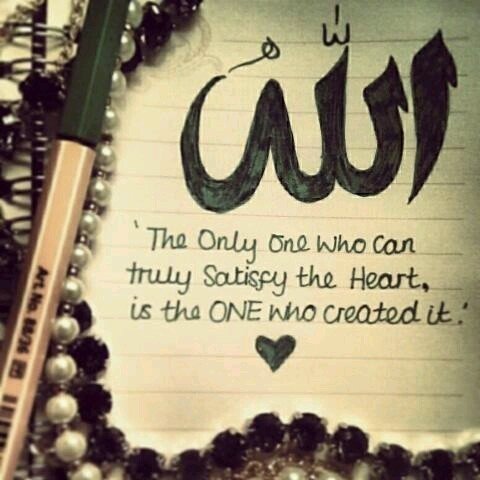 الله
'The Only One Who Can
truly Satisfy the Heart,
is the ONE who created it.'
Art.No. 88/36